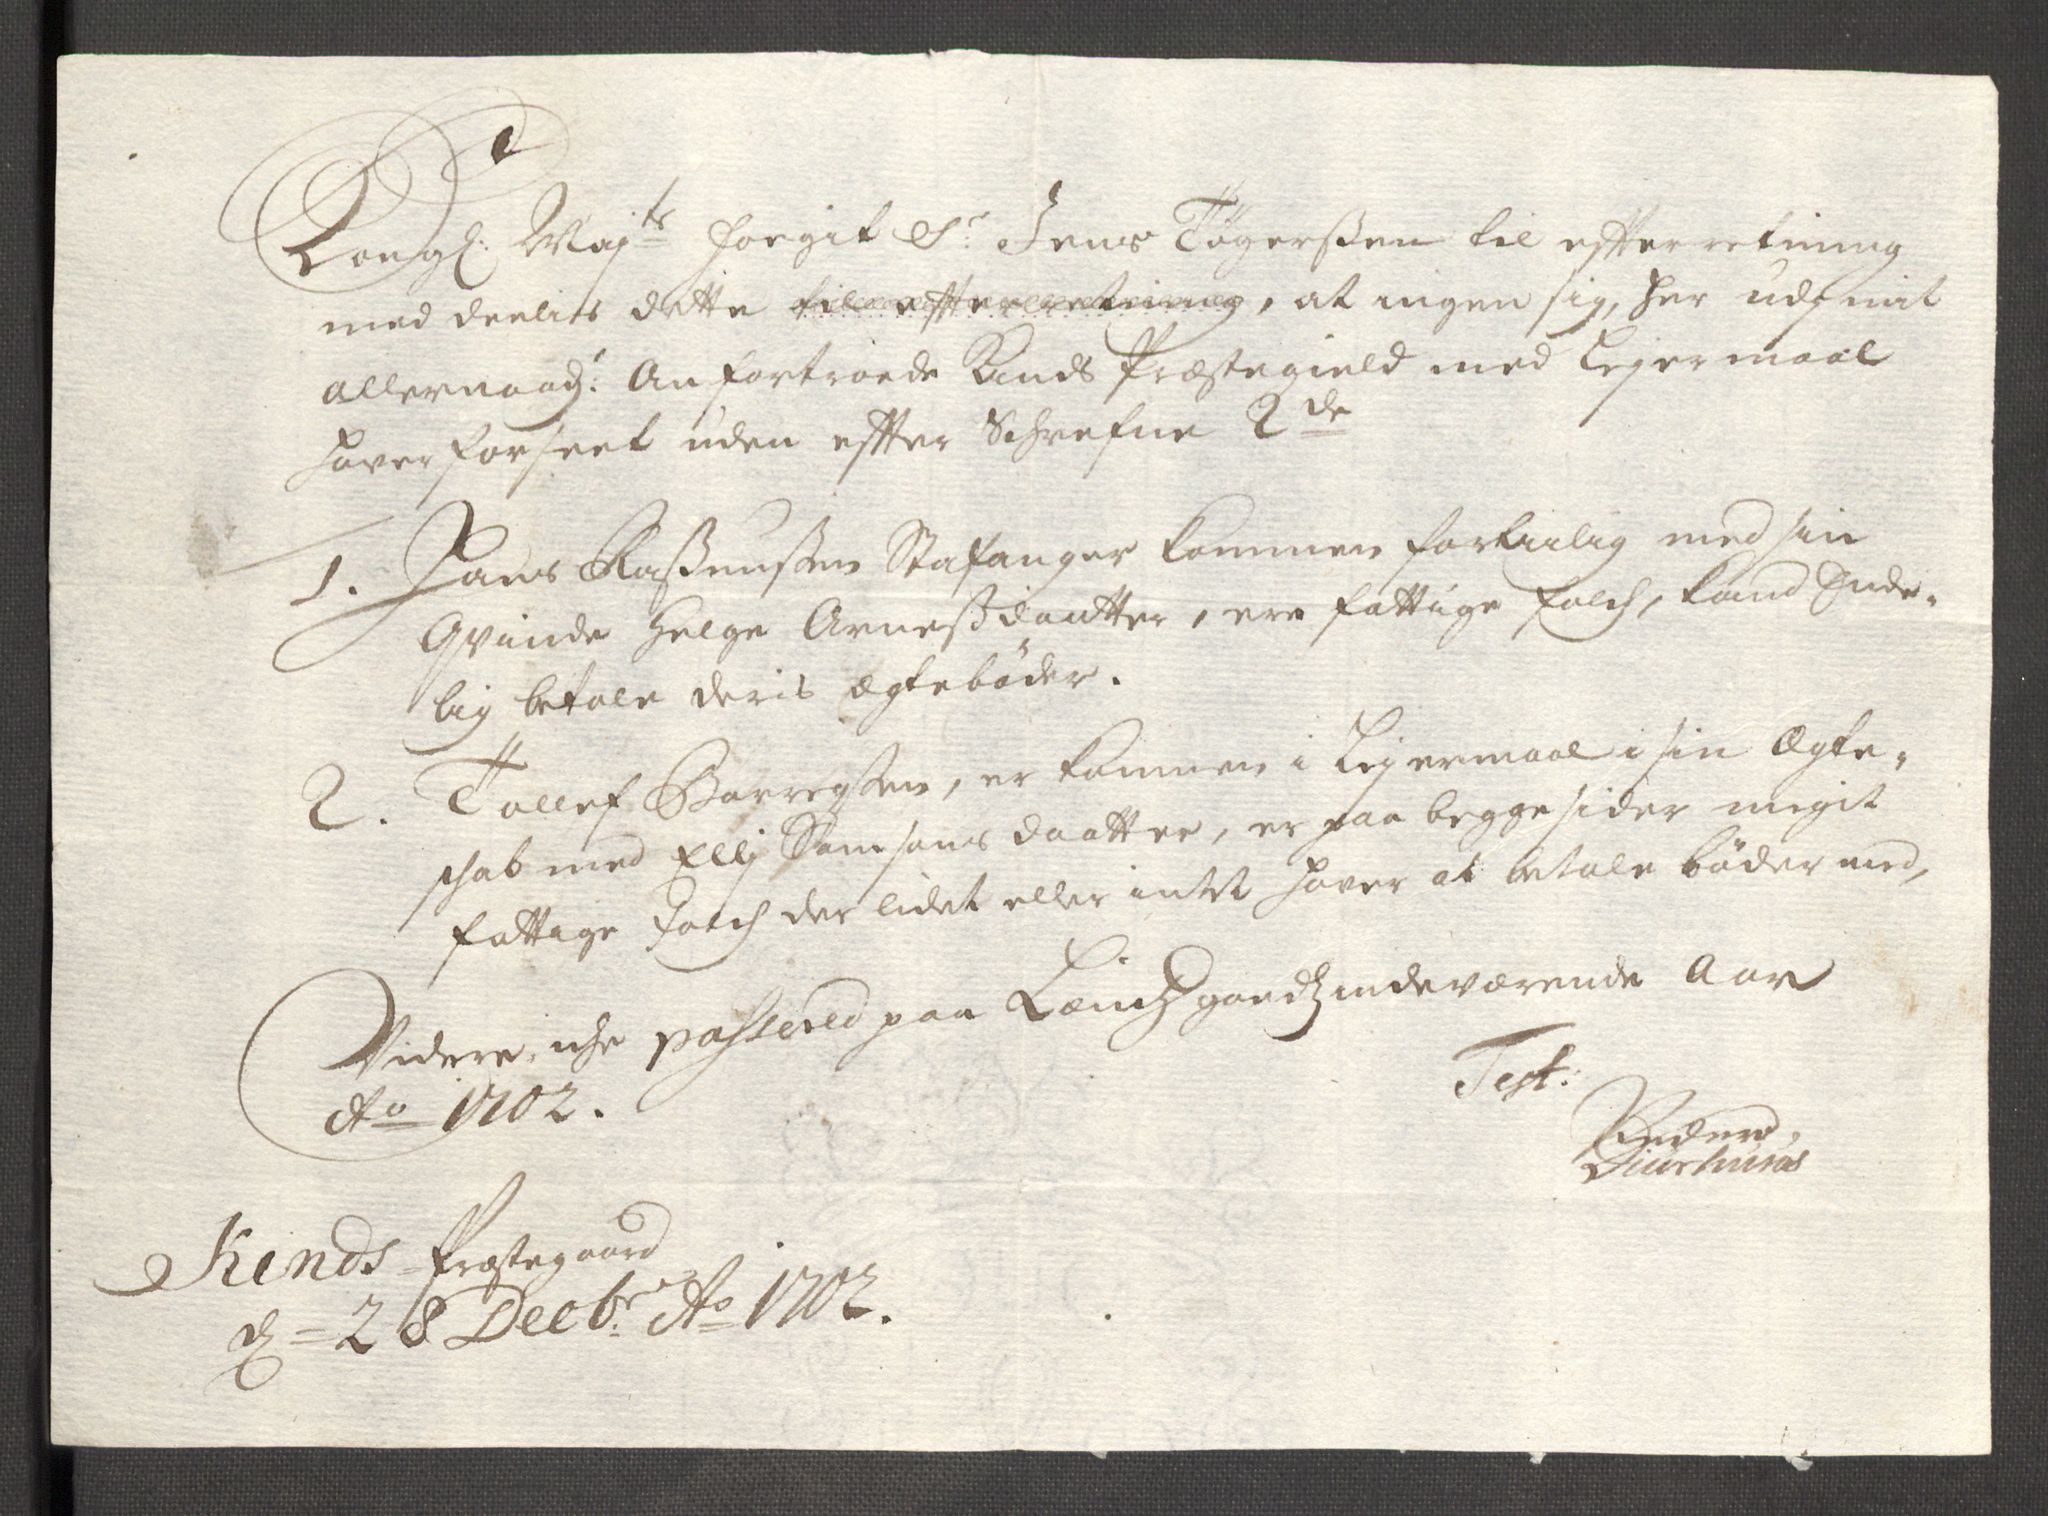 Kongl: Maj:ts foegit Sr: Jens Tøgerssen til efterretning
med deelis dette til efterretning, at ingen sig, her udj mit
allernaadst: Anfortroede Kinds Præstegield med Lejermaal
haver forseet uden effter Schrefne 2de
1. Hans Rasmussen Stafanger kommen fortiilig med sin
Qvinde Helge Arnessdaatter, ere fattige folch, kand Ende-
lig betale deris ægtebøder.
2. Tollef Borregssen, er kommen i Lejermaal i sin Ægte-
schab med Ellj Samsons daatter, er paa begge sider megit
fattige folch der lidet eller intet haver at betale bøder med,
Videre iche passered paa Læns gaardz indeværende Aar
Ao 1702.
Test:
Peder
Diurhuus
Kinds Præstegaard
d = 28 Decbr: Ao 1702.